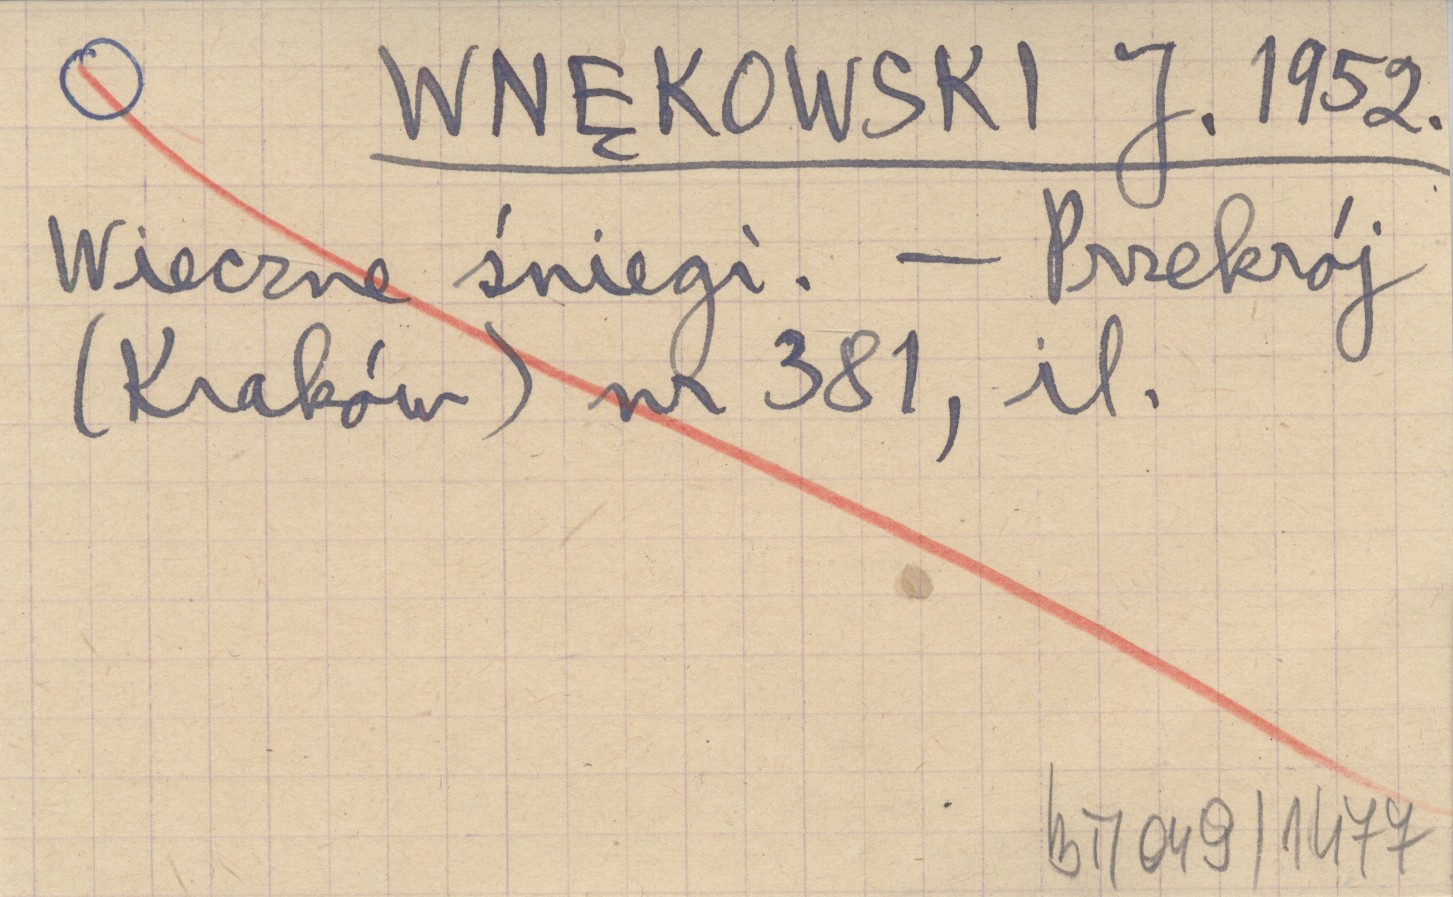 WNĘKOWSKI J. 1952.
Wieczne śniegi. — Przekrój
(Kraków) nr 381, il.
BT/049/1477